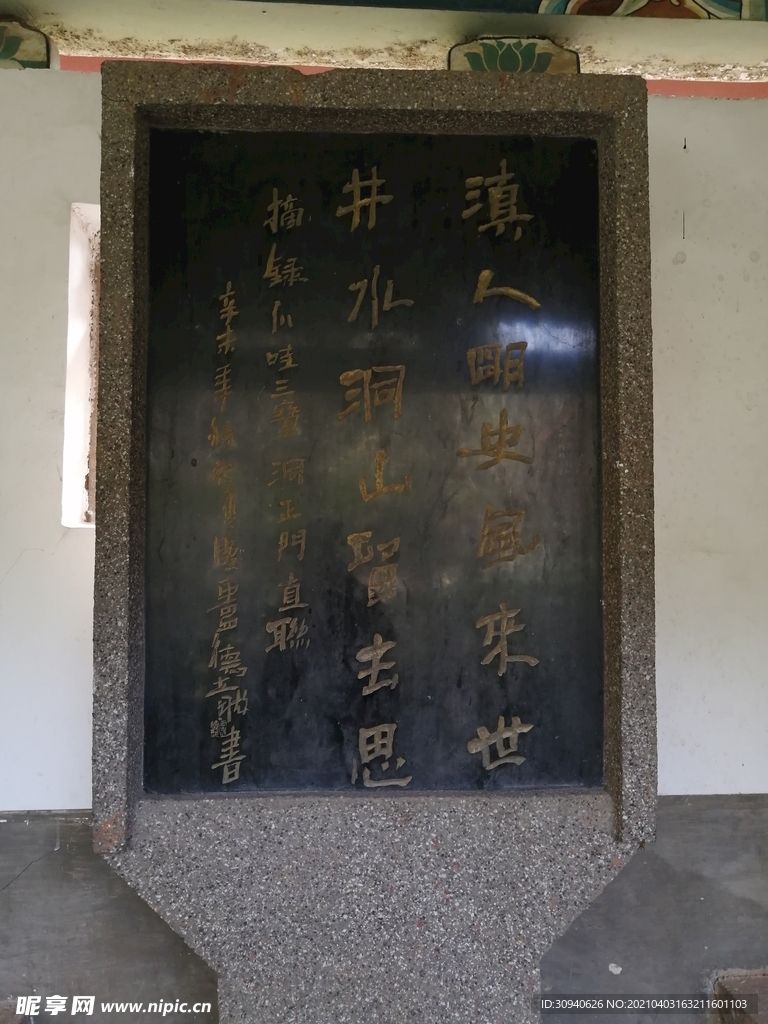 滇人明史風來世
井水洞山留去思
摘錄爪哇三寶洞正門直聯
辛未年
德
書
昵享网 www.nipic.cn
ID:30940626 NO:20210403163211601103